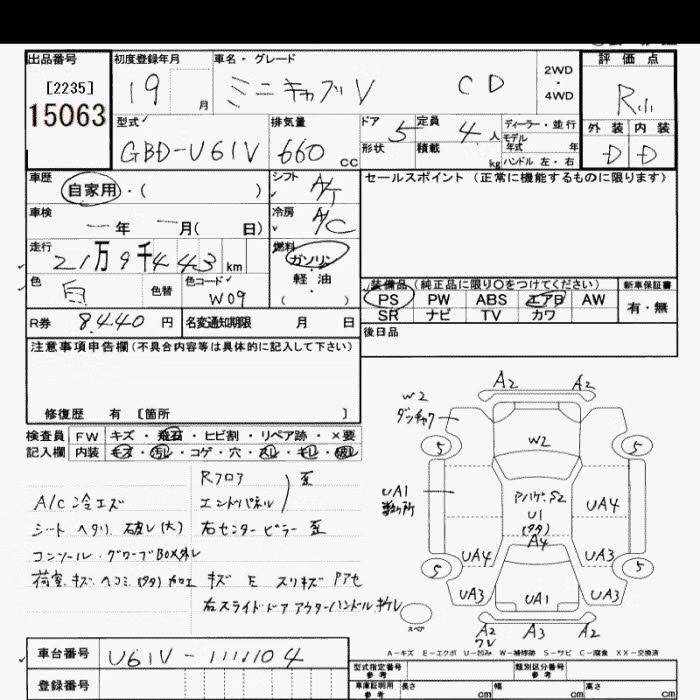 出品番号 初度登録年月 車名・グレード 評価点
[2235] 19 月 ミニキャブ V CD 2WD・4WD R
15063
型式 排気量 ドア 定員 ディーラー・並行 外装 内装
GBD-U61V 660 cc 5 4人 モデル年式 年 D D
形状 積載 kg ハンドル 左・右
車歴 自家用・( ) シフト A/T セールスポイント (正常に機能するものに限ります)
車検 ー年 ー月( 日) 冷房 A/C
走行 21万9千443 km 燃料 ガソリン 軽油
色 白 色替 色コード W09
装備品(純正品に限り○をつけてください) 新車保証書
PS PW ABS エアB AW 有・無
SR ナビ TV カワ
R券 8440 円 名変通知期限 月 日
後日品
注意事項申告欄(不具合内容等は具体的に記入して下さい)
修復歴 有 [箇所 ]
検査員 FW キズ・飛石・ヒビ割・リペア跡・×要
記入欄 内装 キズ・汚レ・コゲ・穴・スレ・キレ・破レ
Rフロア 歪
A/C 冷エズ エンドパネル
シート ヘタリ 破レ(大) 右センターピラー 歪
コンソール・グローブBOX外レ
荷室 キズ ヘコミ(タタ) 加工 キズ E スリキズ
右スライドドア アウターハンドル
A2 A2
W2
5 W2 5
UA1 UA4
U1
A4
UA4 UA3
5 5
UA3 UA1 UA3
スペア
A2 A3 A2
A-キズ E-エクボ U-凹み W-補修跡 S-サビ C-腐食 XX-交換済
車台番号 U61V-1111104
登録番号
型式指定番号 参考 類別区分番号 参考
車庫証明用 参考 長さ cm 幅 cm 高さ cm